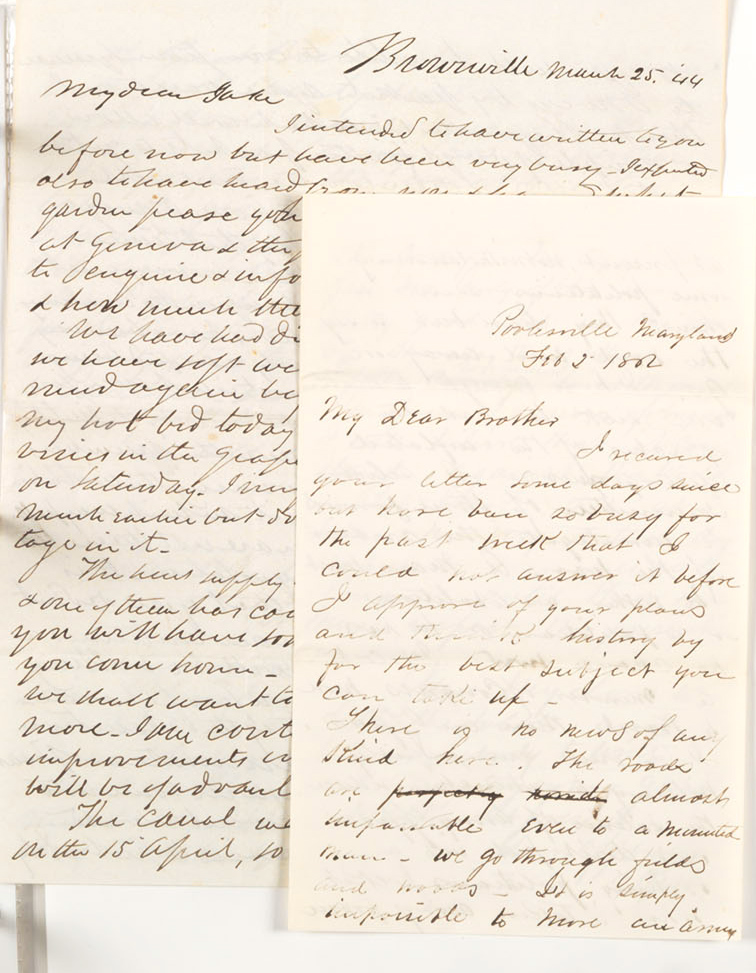 Brownville March 25. '44
My dear Jake
I intended to have written to you
before now but have been very busy - I expected
also to have heard from
garden pease you
at Geneva & the
to enquire & info
& how much the
We have had di
we have soft we
mud again by
my hot bed today
vines in the Grape
on Saturday - I
much earlier but do
tage in it -
The hens supply
& one of them has
you will have
you come home -
we shall want to
more - I am cont
improvements in
will be of advant
The canal
on the 15 April, so
Poolesville Maryland
Feb 2 1862
My Dear Brother
I received
your letter some days since
but have been so busy for
the past week that I
could not answer it before
I approve of your plans
and think history by
far the best subject you
can take up -
There is no news of any
kind here. The roads
are almost
impassable even to a mounted
man - we go through fields
and woods - It is simply
impossible to move an army